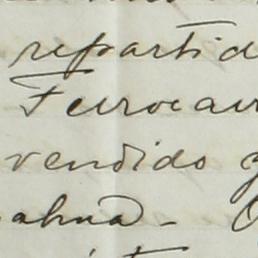 repartid
Ferrocarr
vendido y
ahua. O